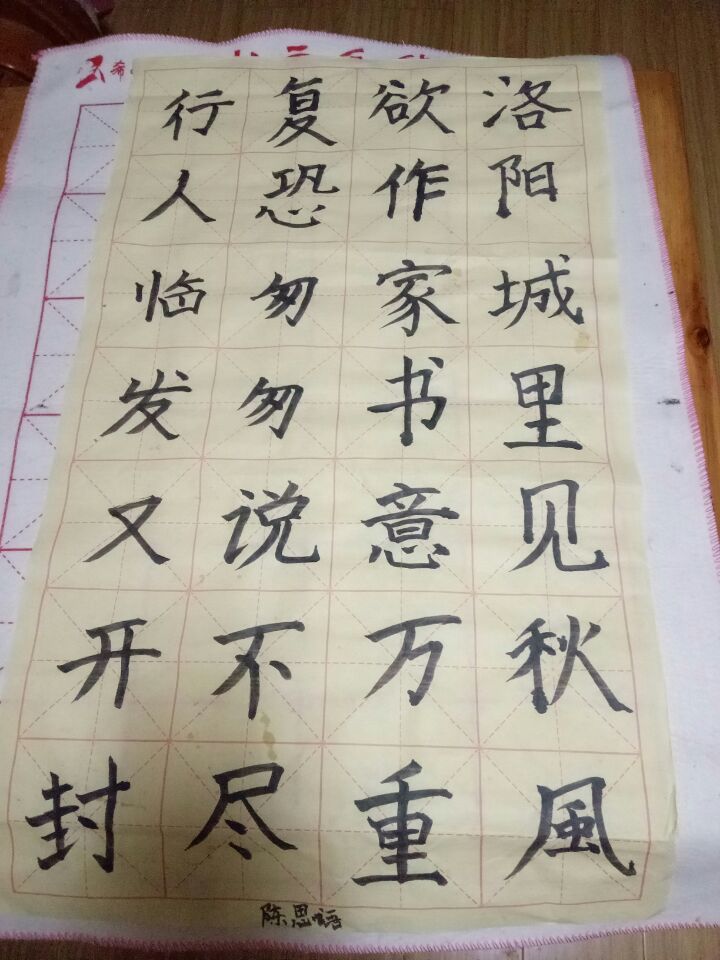 洛阳城里见秋風
欲作家书意万重
复恐匆匆说不尽
行人临发又开封
陈思语